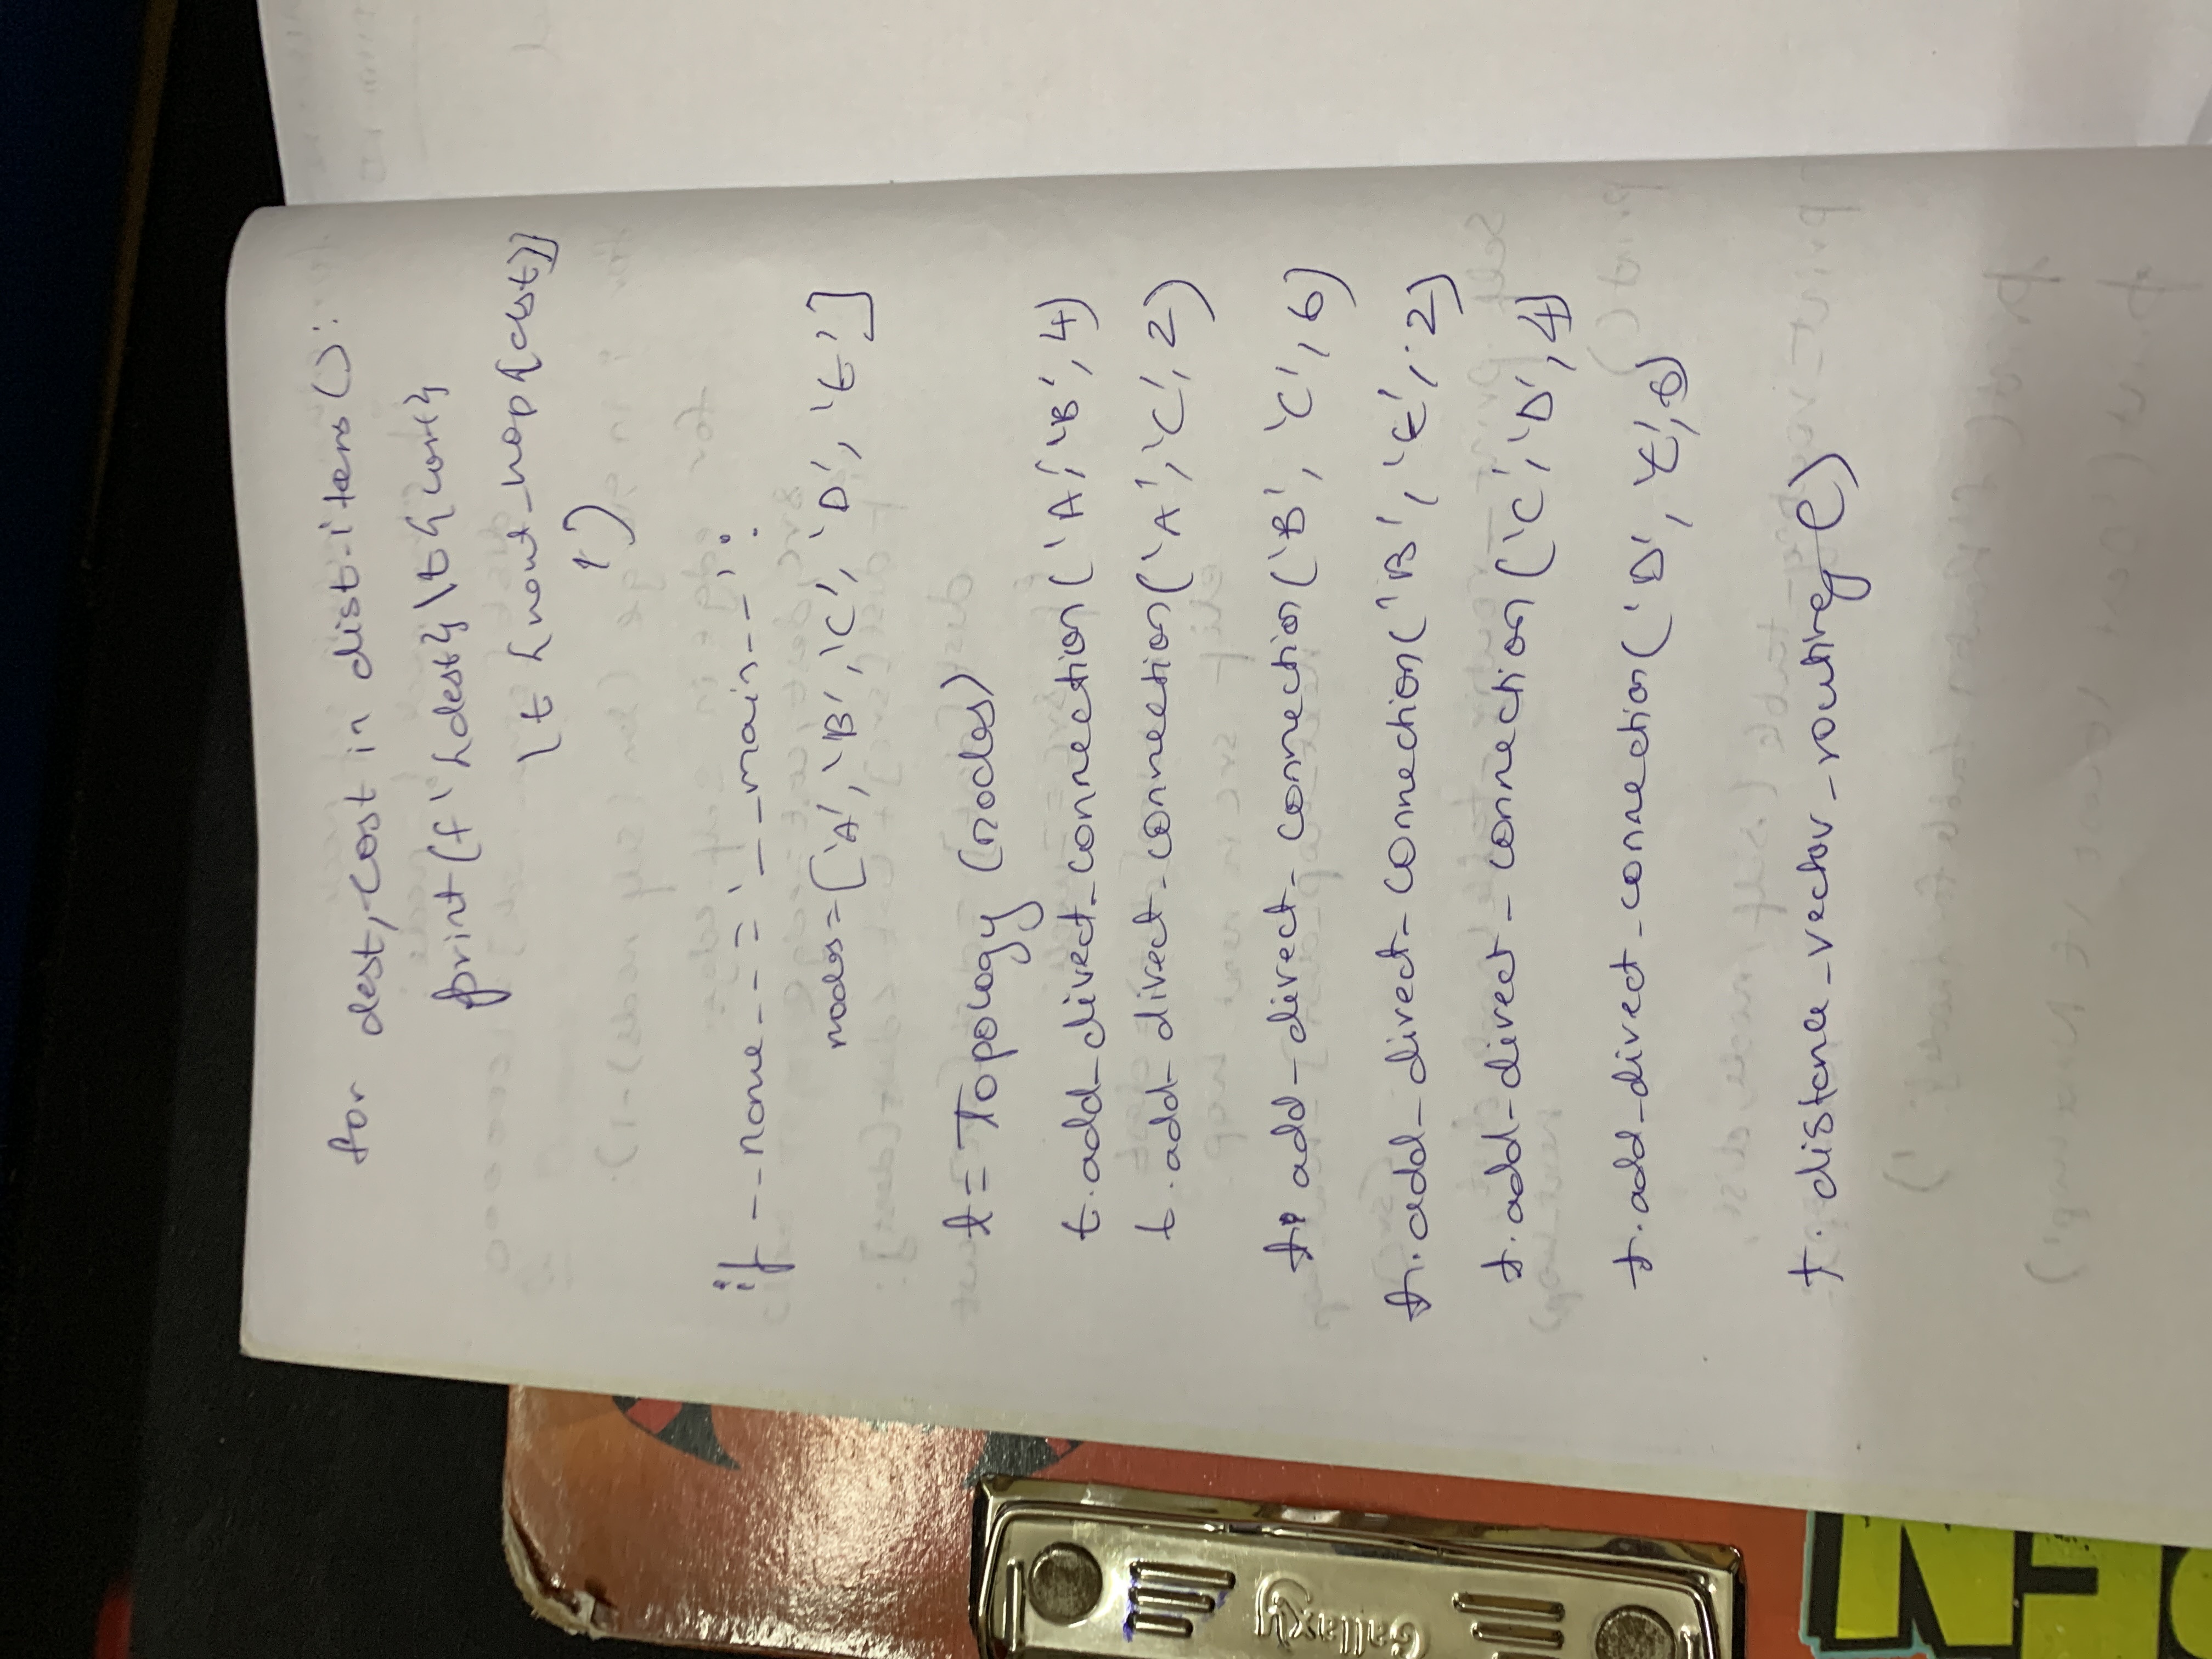 for dest, cost in dist.items():
print(f'{dest}\t{cost}
\t{next_hop[dest]}
')
if __name__=='__main__':
nodes=['A','B','C','D','E']
t=Topology(nodes)
t.add_direct_connection('A','B',4)
t.add_direct_connection('A','C',2)
t.add_direct_connection('B','C',6)
t.add_direct_connection('B','E',2)
t.add_direct_connection('C','D',4)
t.add_direct_connection('D','E',6)
t.distance_vector_routing()
Gallaxy